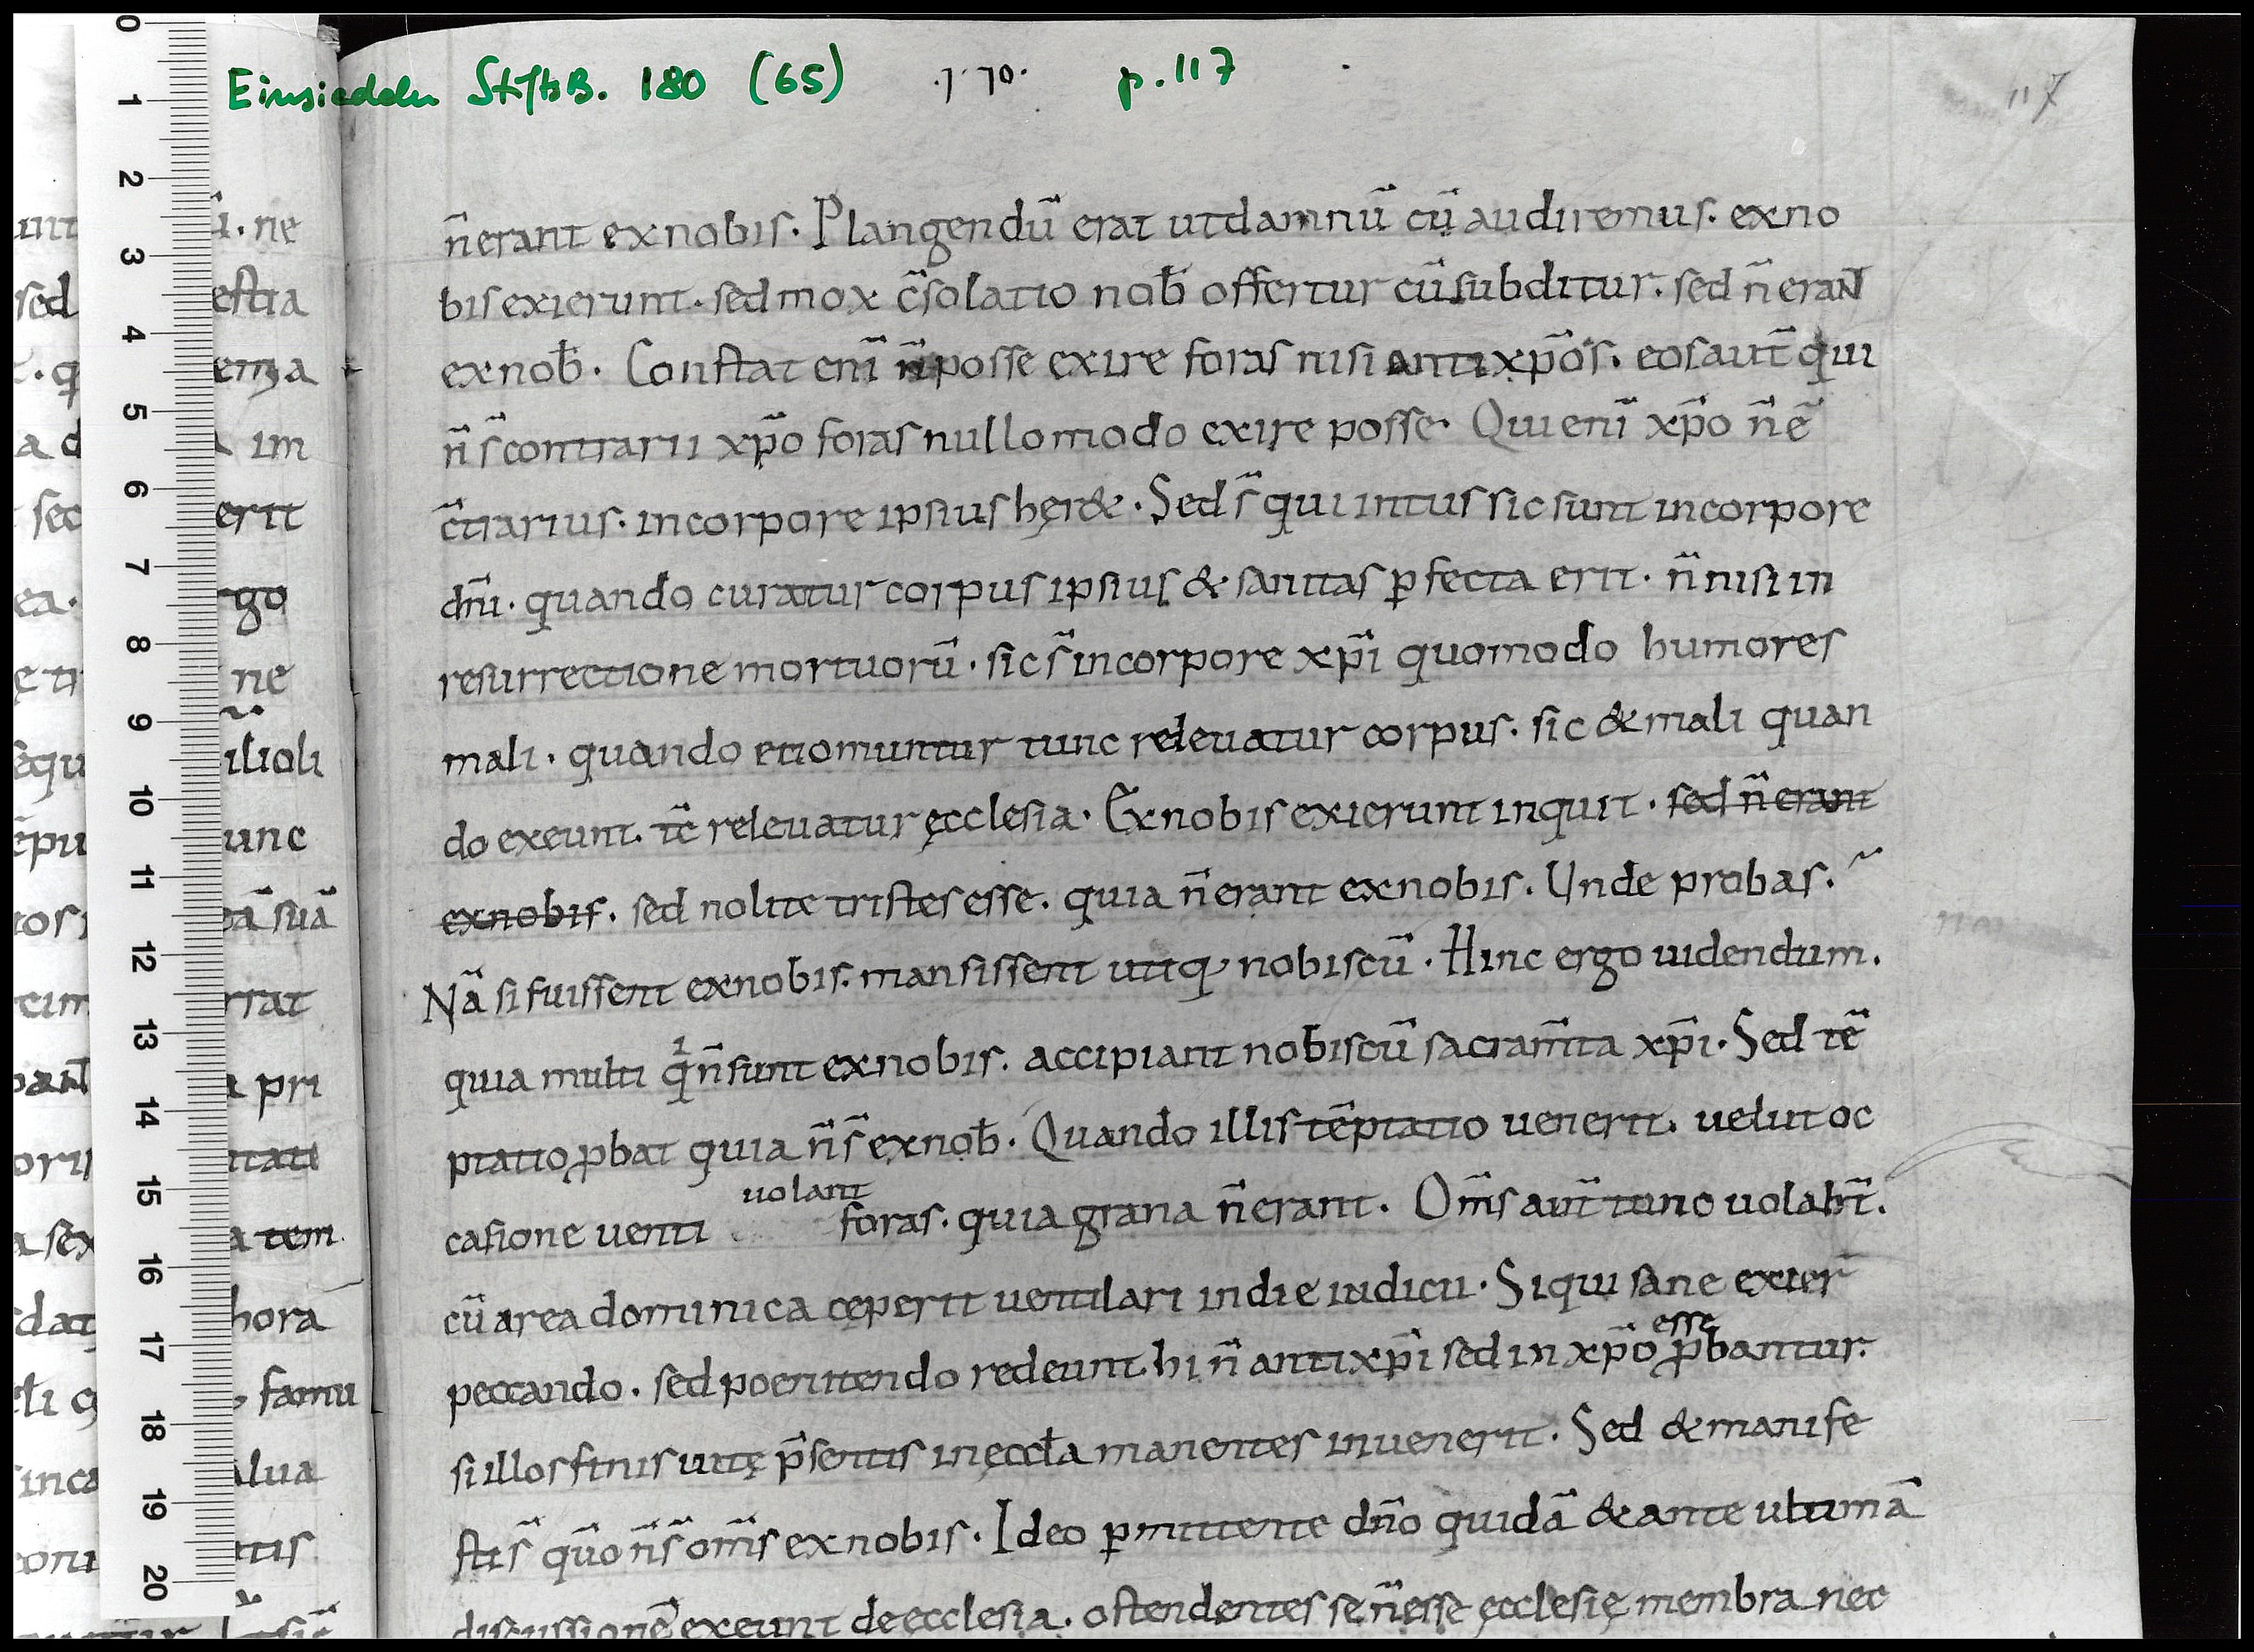 Einsiedeln StiftsB. 180 (65) ·770· p. 117 117
n̄erant exnobis. Plangendū erat utdamnū cū audiremus. exno
bis exierunt. sed mox c̄solatio nob̄ offertur cū subditur. sed n̄ erant
exnob̄. Constat enī n̄ posse exire foras nisi antixp̄os. eos aut̄ qui
n̄ s̄ contrarii xp̄o foras nullomodo exire posse. Qui enī xp̄o n̄ ē
c̄trarius. incorpore ipsius hęr&. Sed s̄ qui intus sic sunt incorpore
dn̄i. quando curatur corpus ipsius & sanitas ꝑfecta erit. n̄ nisi in
resurrectione mortuorū. sic s̄ incorpore xp̄i quomodo humores
mali. quando euomuntur tunc releuatur corpus. sic & mali quan
do exeunt. tc̄ releuatur ęcclesia. Exnobis exierunt inquit. sed n̄ erant
exnobis. sed nolite tristes esse. quia n̄ erant exnobis. Unde probas.
Nā si fuissent exnobis. mansissent utiq; nobiscū. Hinc ergo uidendum.
quia multi qⁱ n̄ sunt exnobis. accipiant nobiscū sacram̄ta xp̄i. Sed tē
ptatio ꝓbat quia n̄ s̄ exnob̄. Quando illis tēptatio uenerit. uelut oc
casione uenti uolant foras. quia grana n̄ erant. Om̄s aut̄ tunc uolabt̄.
cū area dominica cęperit uentilari indie iudicii. Siqui sane exier̄
peccando. sed poenitendo redeunt. hi n̄ antixp̄i sed in xp̄o esse ꝓbantur.
si illos finis uitę p̄sentis in ęccƚa manentes inuenerit. Sed & manife
sti s̄ quō n̄ s̄ om̄s exnobis. Ideo ꝑmittente dn̄o quidā & ante ultimā
discussionē exeunt de ecclesia. ostendentes se n̄ esse ęcclesię membra nec